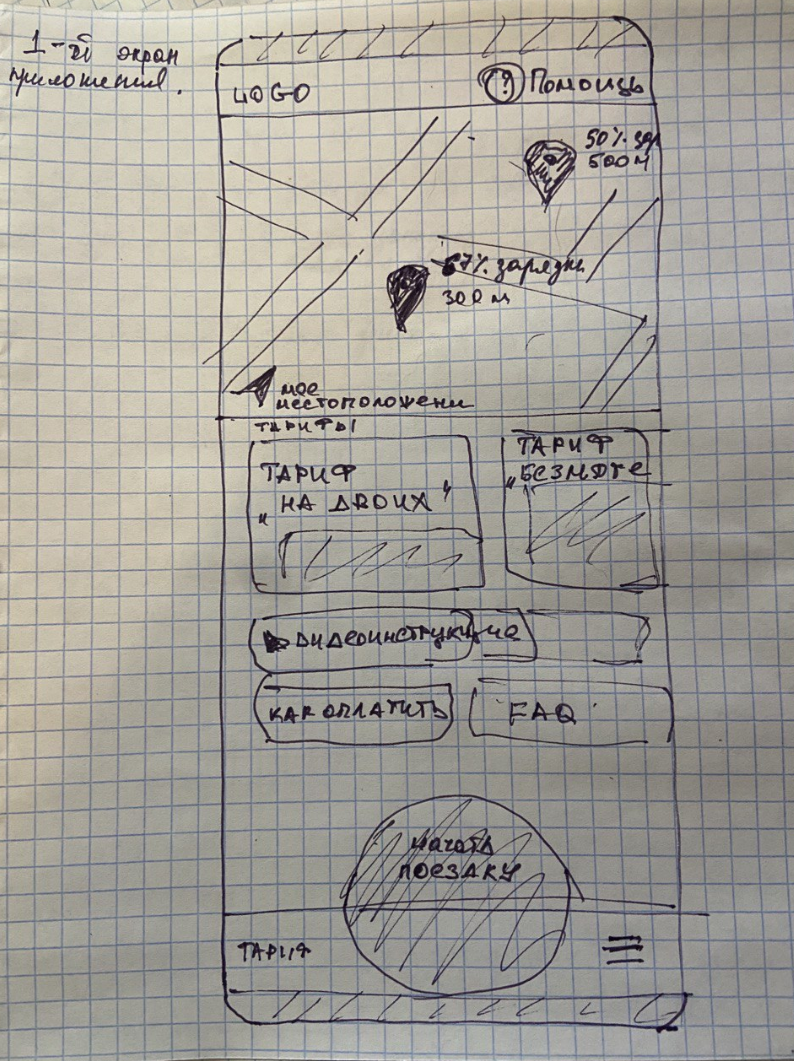 1-й экран
приложения.
LOGO
? Помощь
50% зар
500 м
67% зарядки
300 м
мое
местоположени
ТАРИФЫ
ТАРИФ
„НА ДВОИХ"
ТАРИФ
„БЕЗМЯТЕ
ВИДЕОИНСТРУКЦИЯ
КАК ОПЛАТИТЬ
FAQ
Начать
ПОЕЗДКУ
ТАРИФ